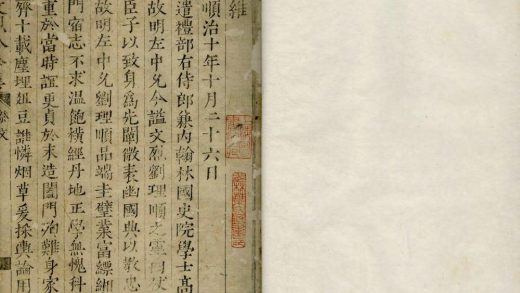 維
順治十年十月二十六日
遣禮部右侍郎兼內翰林國史院學士高
故明左中允今諡文烈劉理順之靈曰
臣子以致身為先闡微表幽國典以教忠
故明左中允劉理順品端圭璧業富縹緗
門宿志不求溫飽橫經丹地正學無愧科
重於當時誼更貞於末造闔門殉難身家
齊十載塵埋俎豆誰憐烟草爰採輿論用
祭文